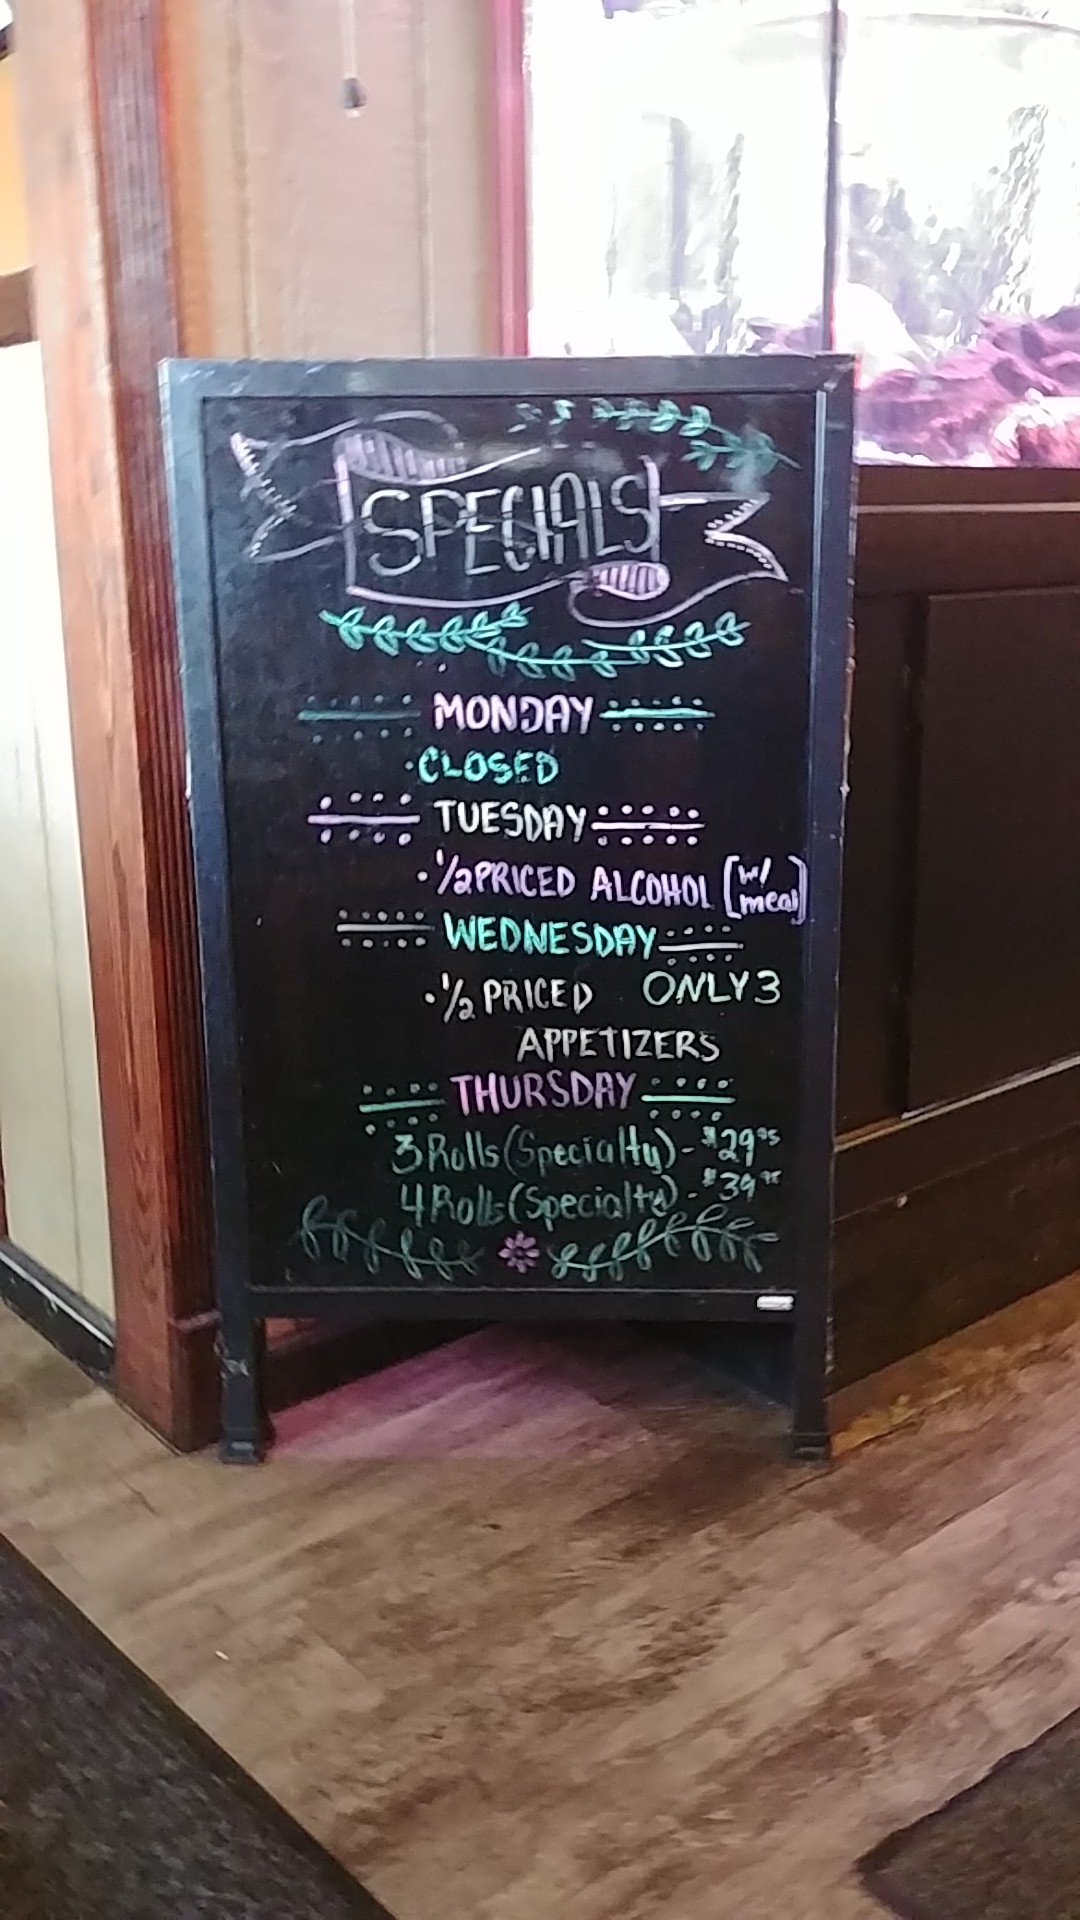 SPECIALS
MONDAY
·CLOSED
TUESDAY
·1/2 PRICED ALCOHOL [w/ meal]
WEDNESDAY
·1/2 PRICED ONLY 3
APPETIZERS
THURSDAY
3 Rolls (Specialty) - $29.95
4 Rolls (Specialty) - $39.95